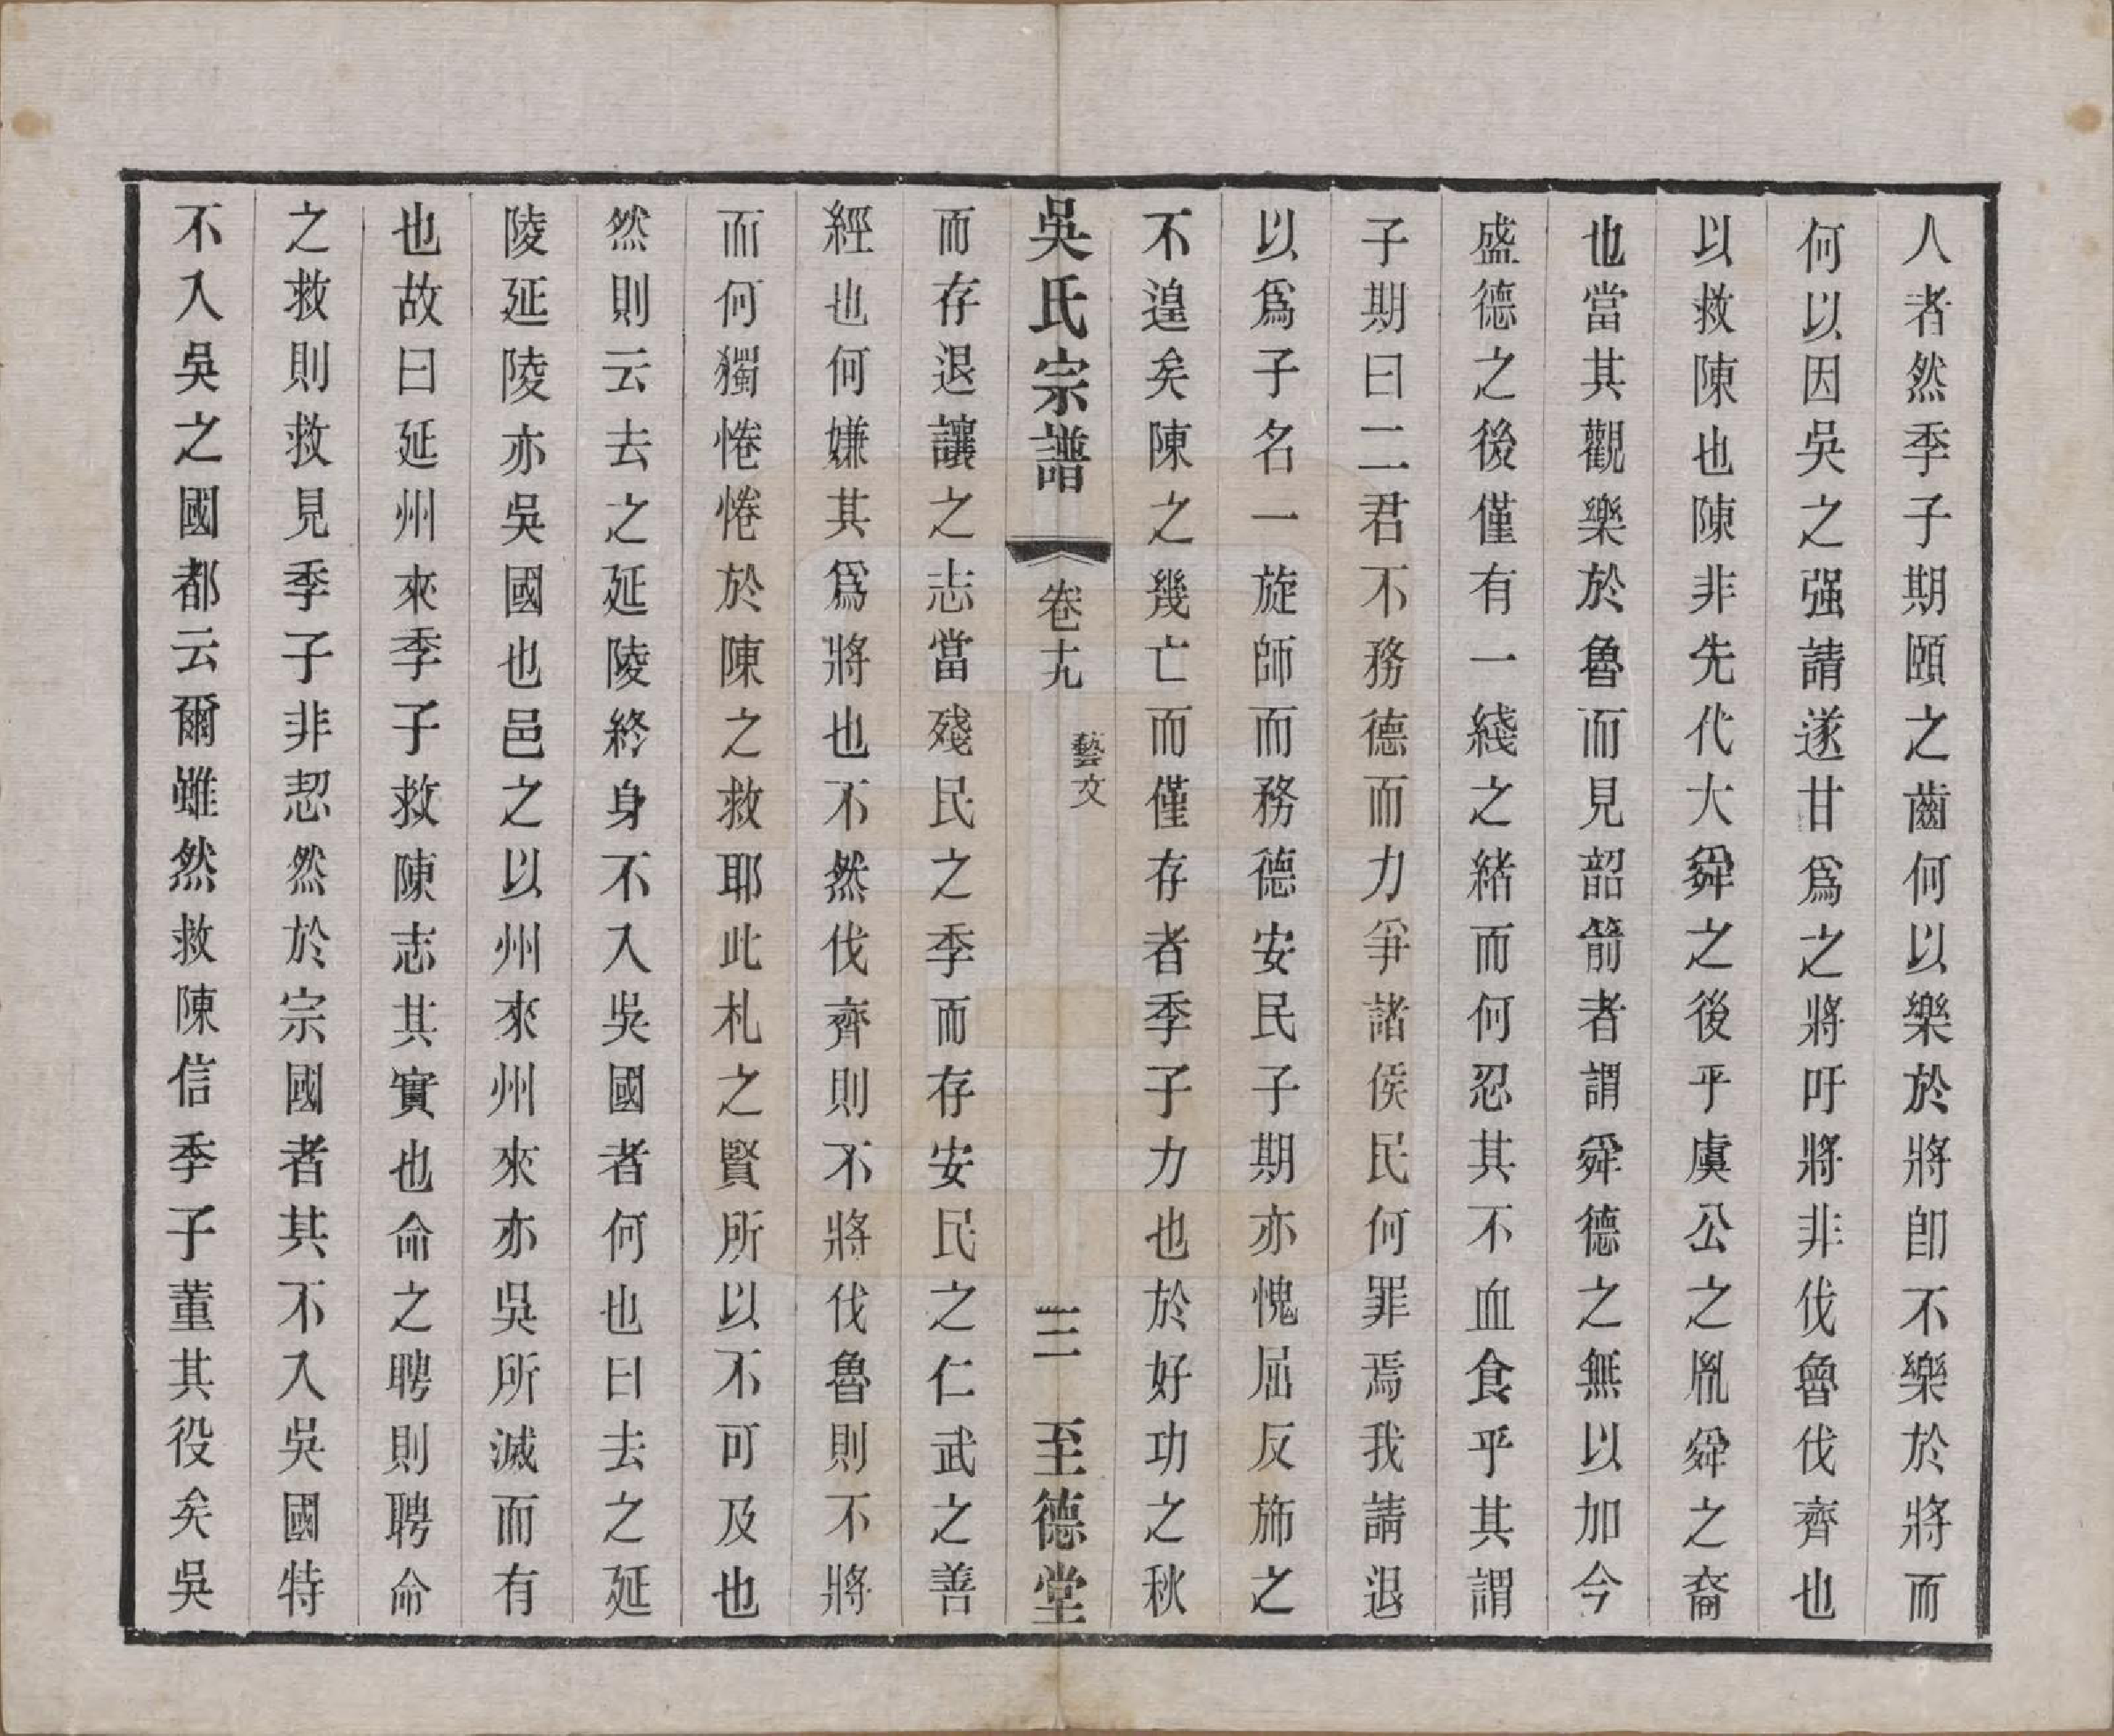 人者然季子期頤之齒何以樂於將卽不樂於將而
何以因吳之强請遂甘爲之將吁將非伐魯伐齊也
以救陳也陳非先代大舜之後乎虞公之胤舜之裔
也當其觀樂於魯而見韶箾者謂舜德之無以加今
盛德之後僅有一綫之緒而何忍其不血食乎其謂
子期曰二君不務德而力爭諸侯民何罪焉我請退
以爲子名一旋師而務德安民子期亦愧屈反斾之
不遑矣陳之幾亡而僅存者季子力也於好功之秋
吳氏宗譜 卷九 藝文 三 至德堂
而存退讓之志當殘民之季而存安民之仁武之善
經也何嫌其爲將也不然伐齊則不將伐魯則不將
而何獨惓惓於陳之救耶此札之賢所以不可及也
然則云去之延陵終身不入吳國者何也曰去之延
陵延陵亦吳國也邑之以州來州來亦吳所滅而有
也故曰延州來季子救陳志其實也命之聘則聘命
之救則救見季子非恝然於宗國者其不入吳國特
不入吳之國都云爾雖然救陳信季子董其役矣吳